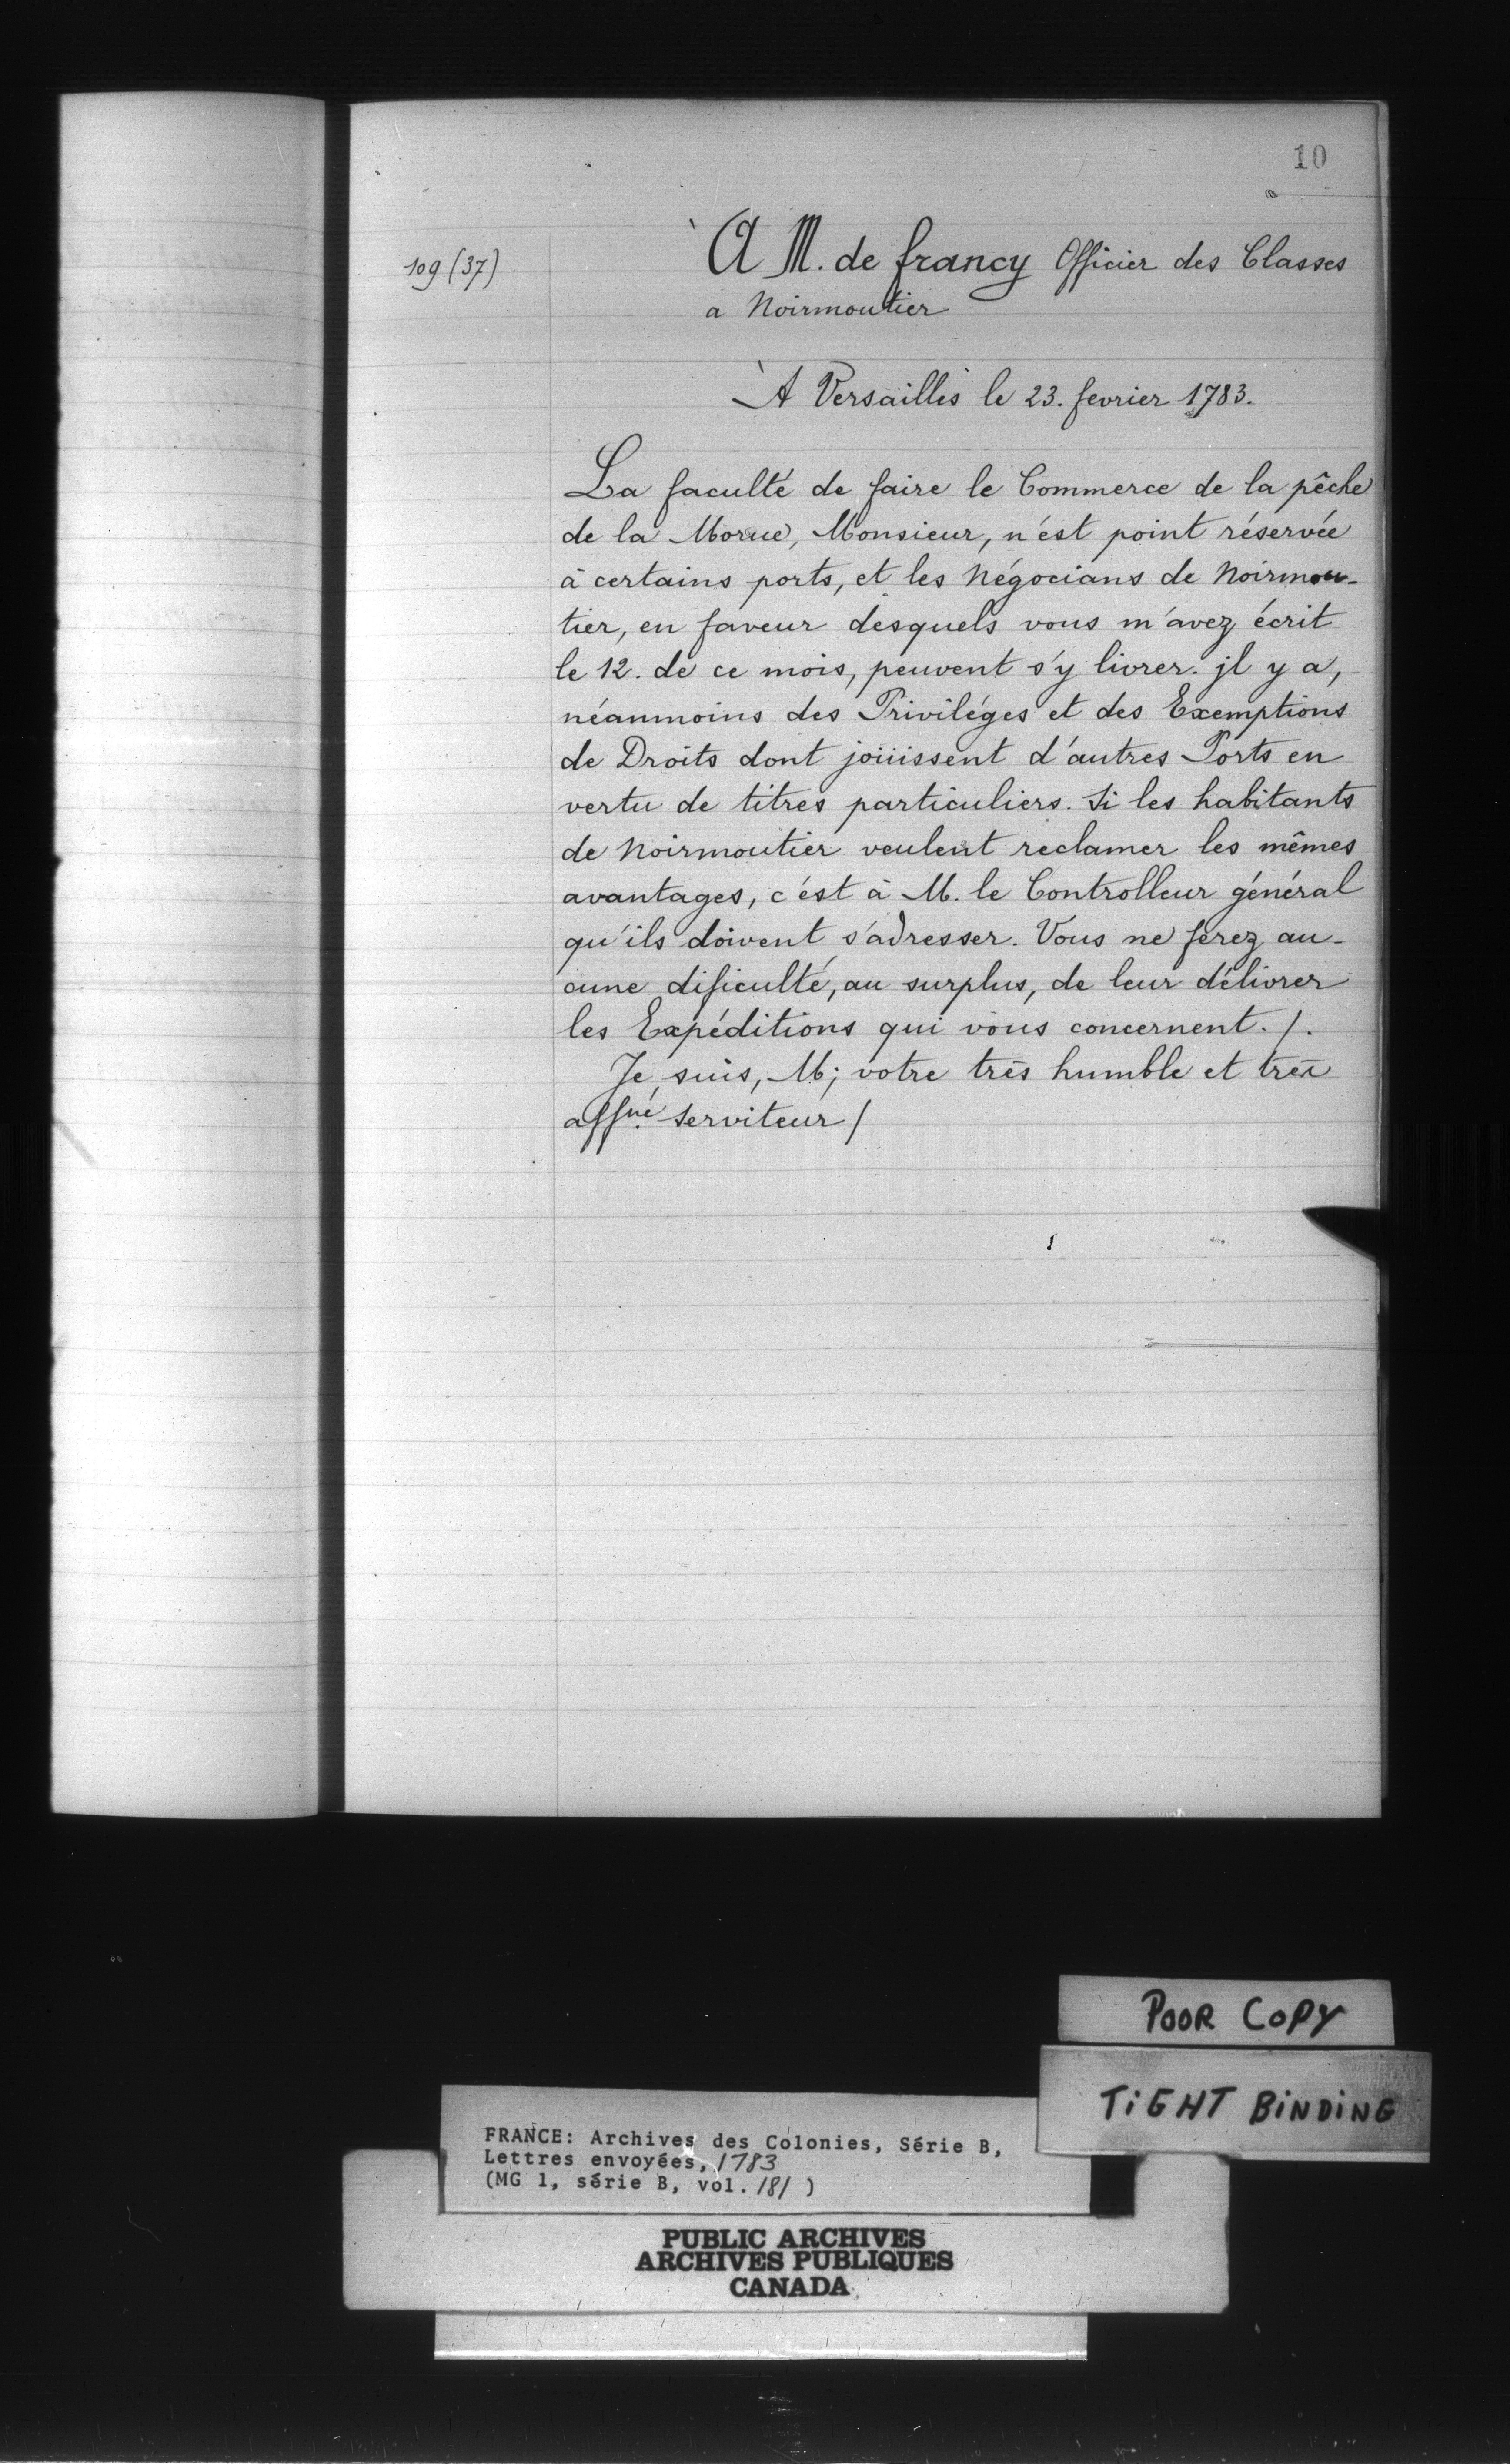 10
109 (37)
À M. de francy Officier des Classes
a Noirmoutier
À Versailles le 23. fevrier 1783.
La faculté de faire le Commerce de la pêche
de la Morue, Monsieur, n'ést point réservée
à certains ports, et les Négocians de Noirmou-
tier, en faveur desquels vous m'avez écrit
le 12. de ce mois, peuvent s'y livrer. jl y a,
néanmoins des Priviléges et des Exemptions
de Droits dont joüissent d'autres Ports en
vertu de titres particuliers. Si les habitants
de Noirmoutier veulent reclamer les mêmes
avantages, c'ést à M. le Controlleur général
qu'ils doivent s'adresser. Vous ne ferez au-
cune dificulté, au surplus, de leur délivrer
les Expéditions qui vous concernent. /.
Je suis, M; votre très humble et très
affné. Serviteur /
POOR COPY
TIGHT BINDING
FRANCE: Archives des Colonies, Série B,
Lettres envoyées, 1783
(MG 1, série B, vol. 181 )
PUBLIC ARCHIVES
ARCHIVES PUBLIQUES
CANADA